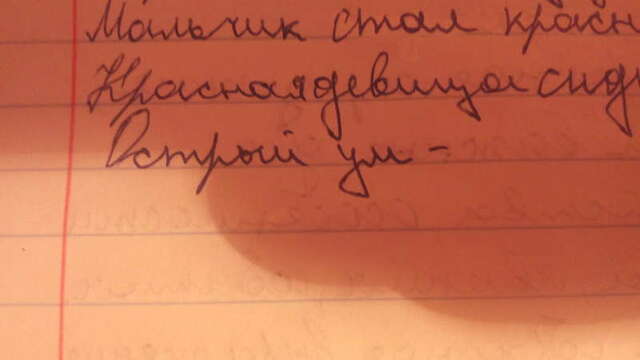 Мальчик стал красн
Красная девица сид
Острый ум -